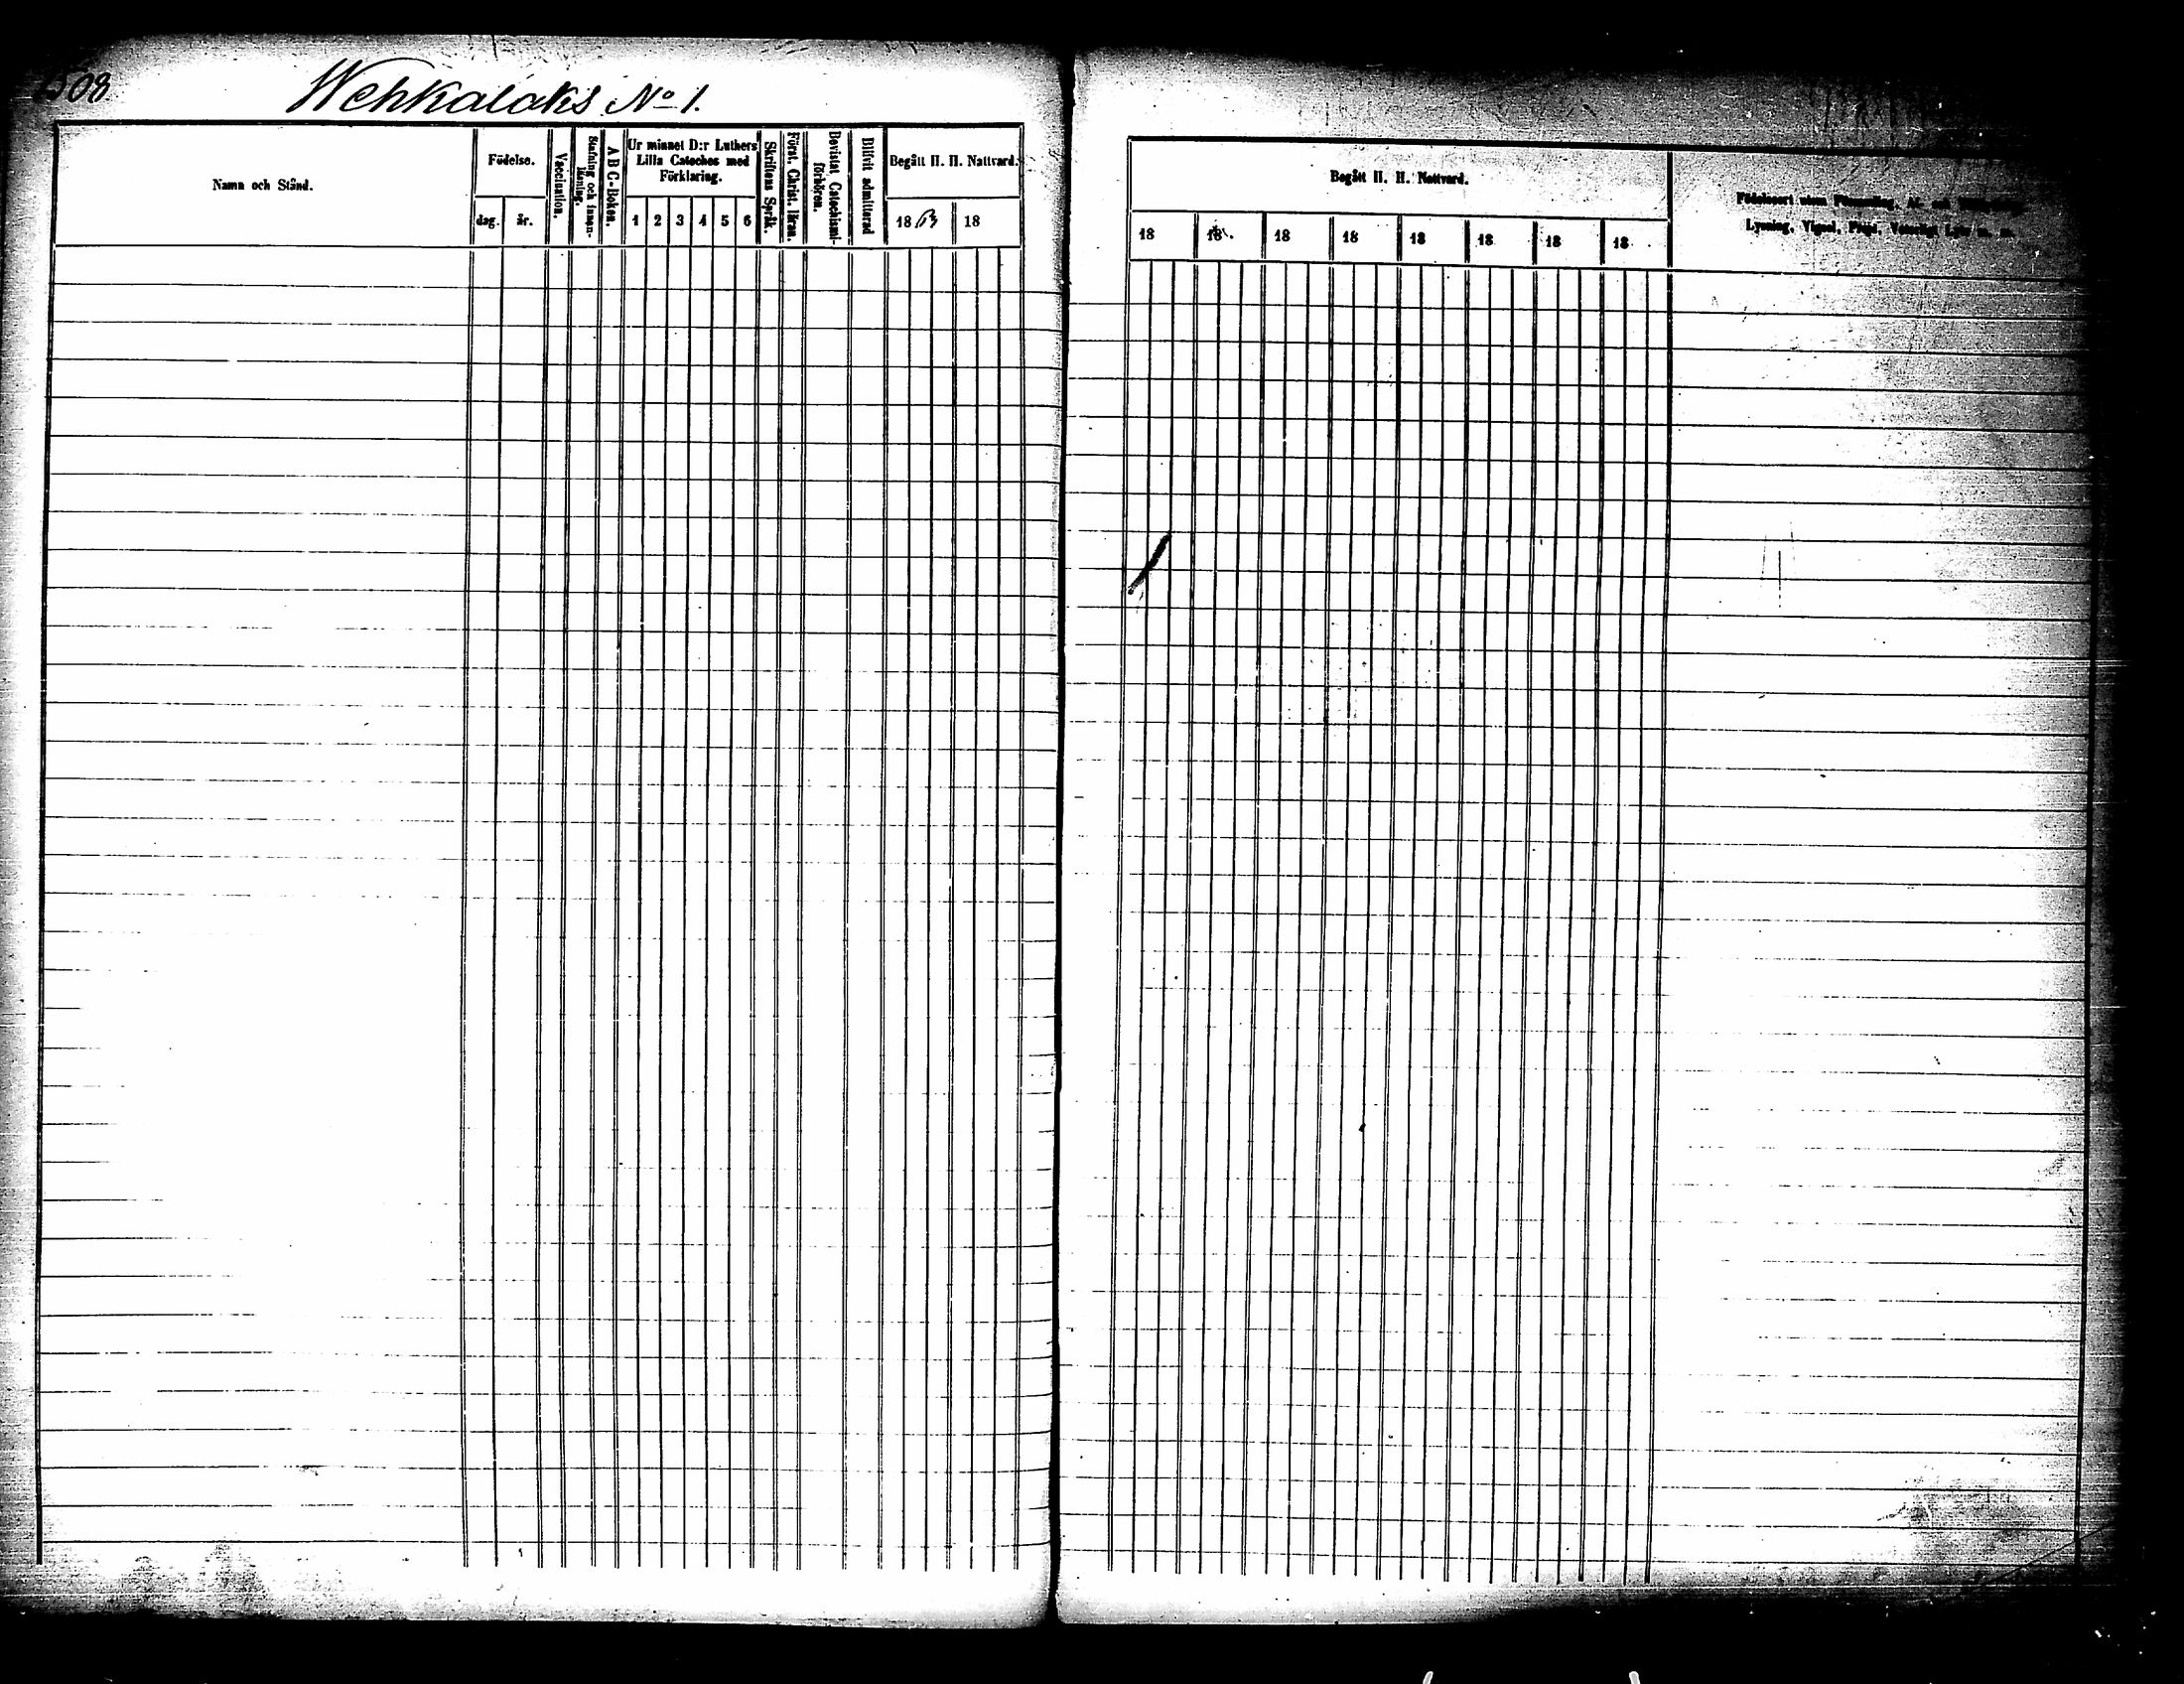 508
Wehkalaks No 1.
Namn och Stånd.
Födelse.
dag.
år.
Vaccination.
Stafning och innan-
läsning.
A B C-Boken.
Ur minnet D:r Luthers
Lilla Cateches med
Förklaring.
1 2 3 4 5 6
Skriftens Språk.
Förut. Christ. läran.
Bevistat Catechismi-
förhören.
Blifvit admitterad
Begått H. H. Nattvard.
18 63
18
Begått H. H. Nattvard.
18 18 18 18 18 18 18 18
Födelseort utom Församling,
Lysning, Vigsel,